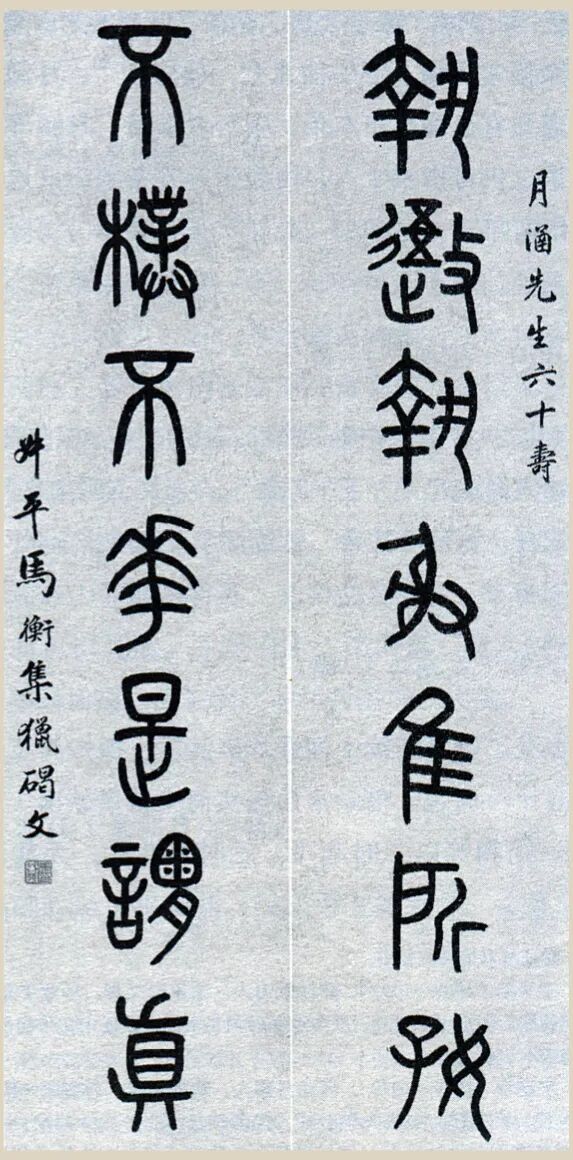 月涵先生六十壽
執御執射隹所好
不樸不華是謂眞
叔平馬衡集獵碣文